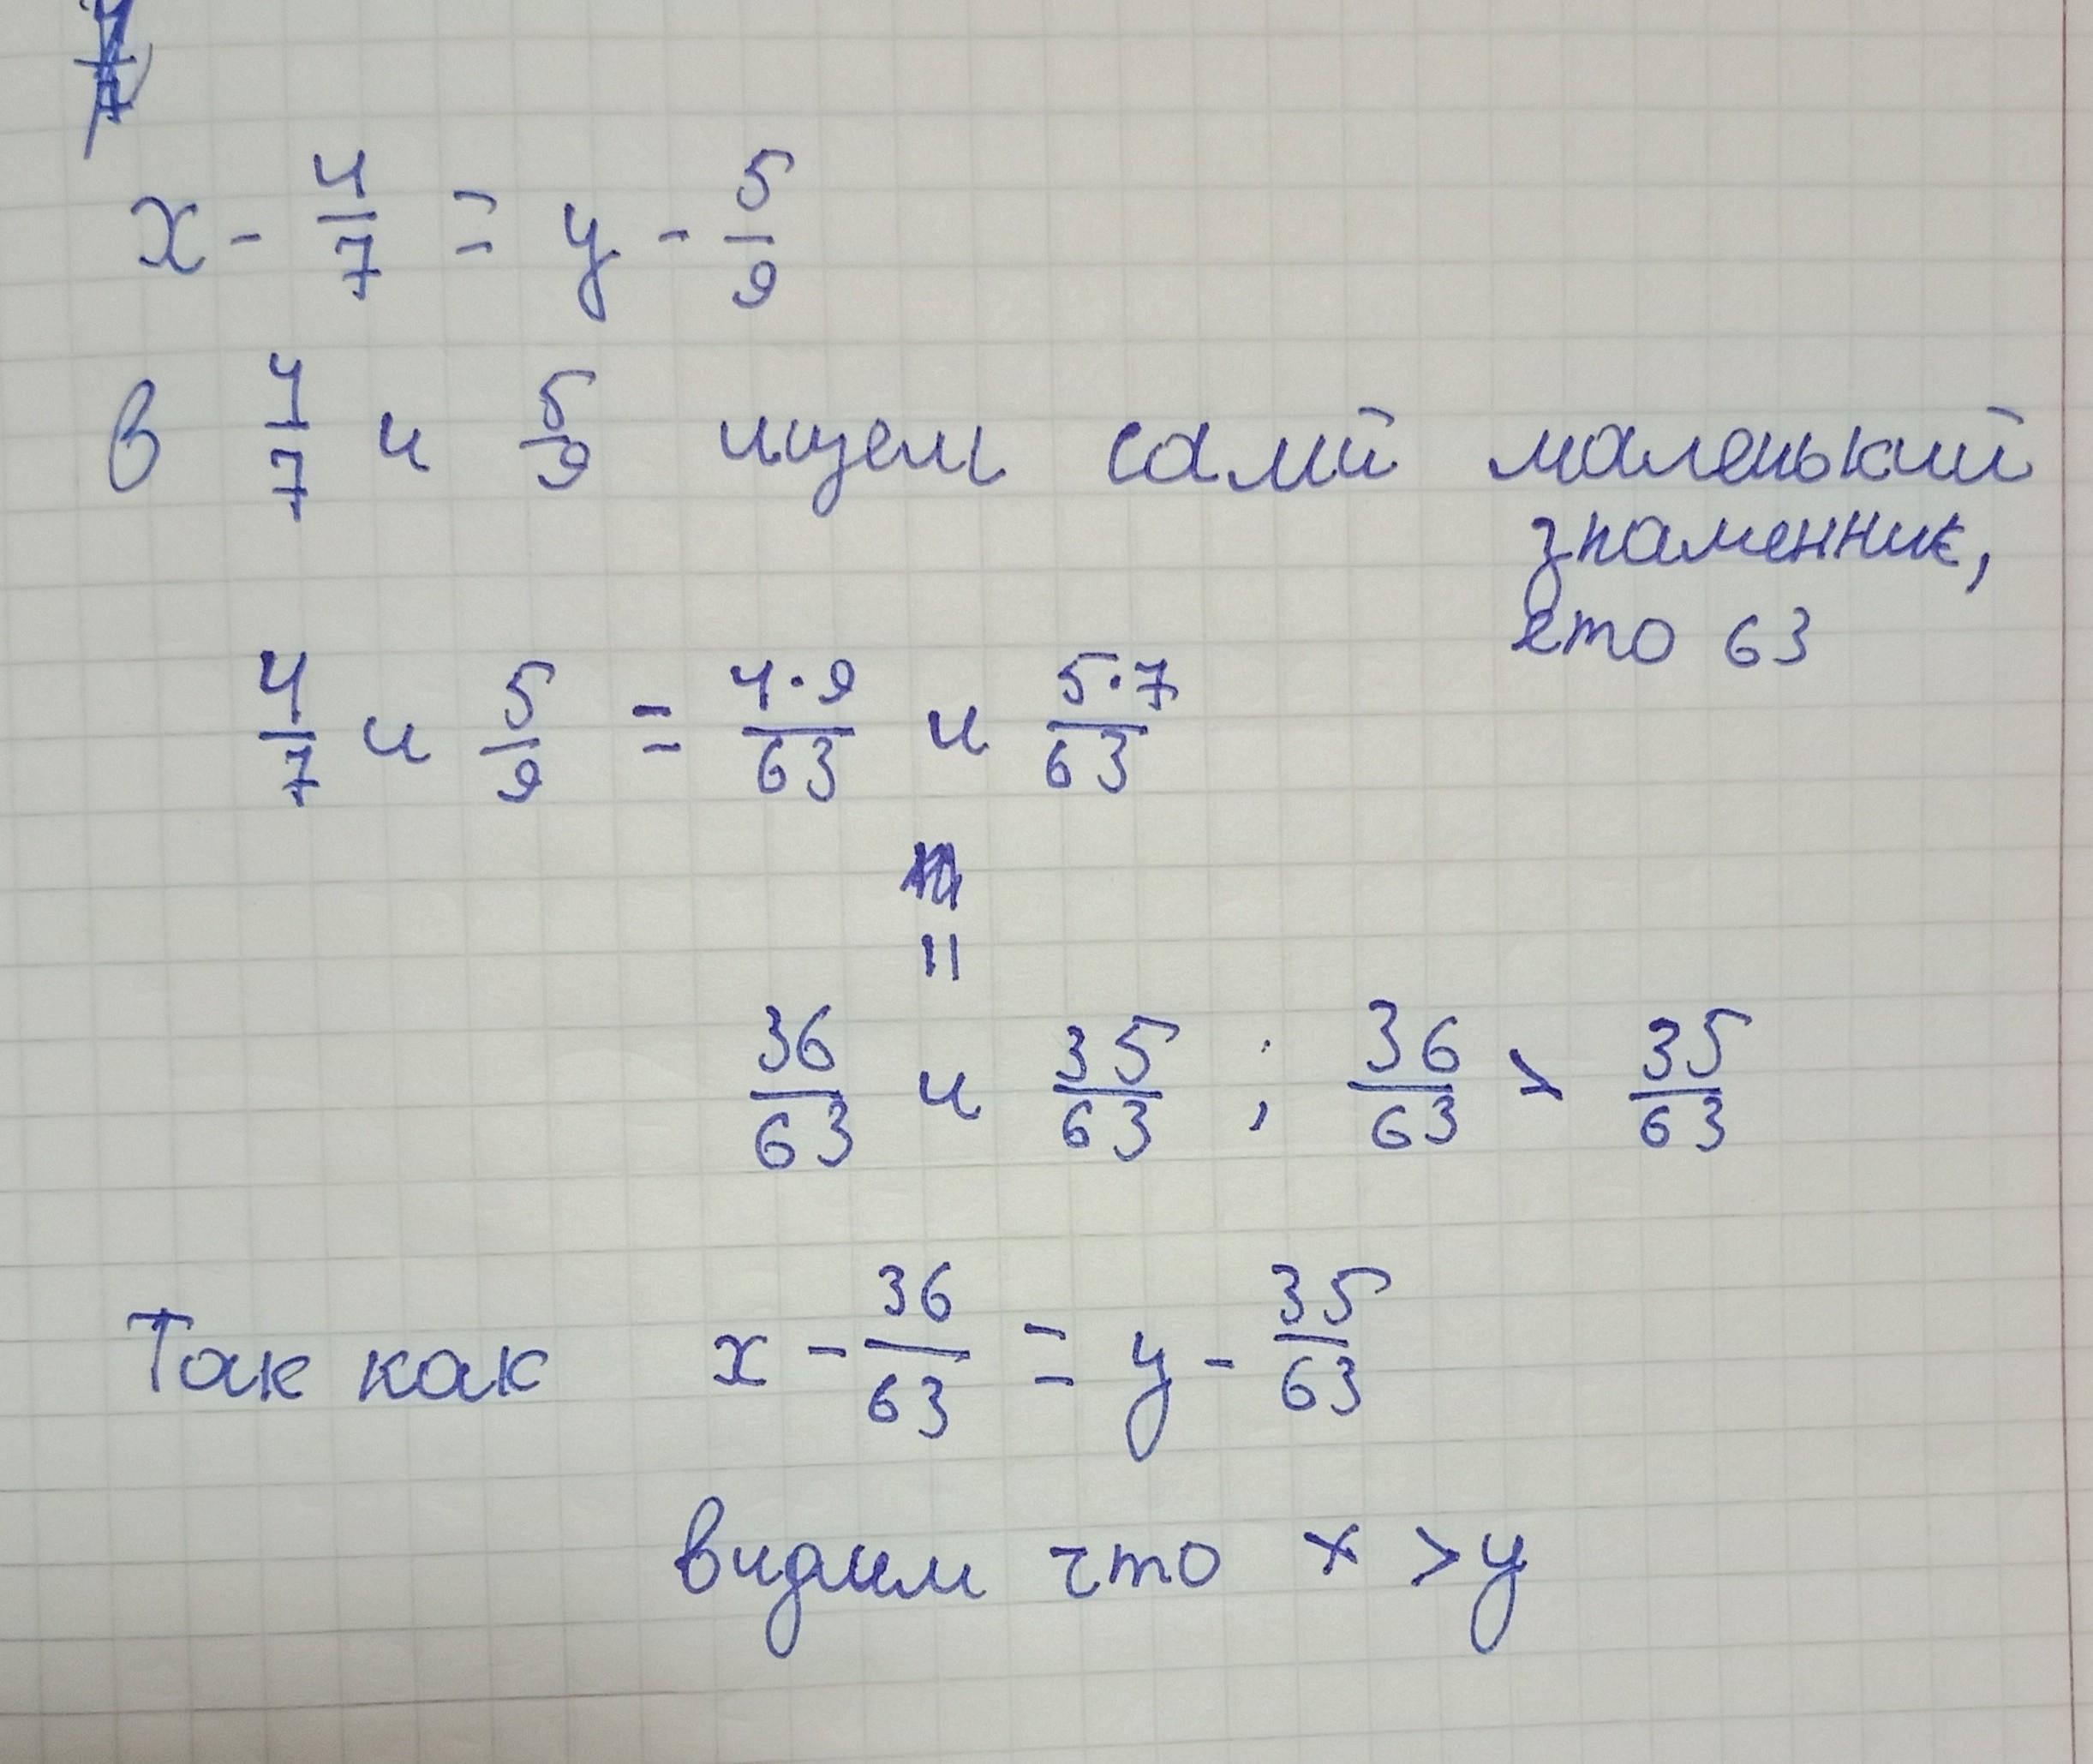 x - 4/7 = y - 5/9
В 4/7 и 5/9 ищем самй маленький
знаменник,
ето 63
4/7 и 5/9 = 4·9/63 и 5·7/63
=
36/63 и 35/63 ; 36/63 > 35/63
Так как x - 36/63 = y - 35/63
видим что x > y